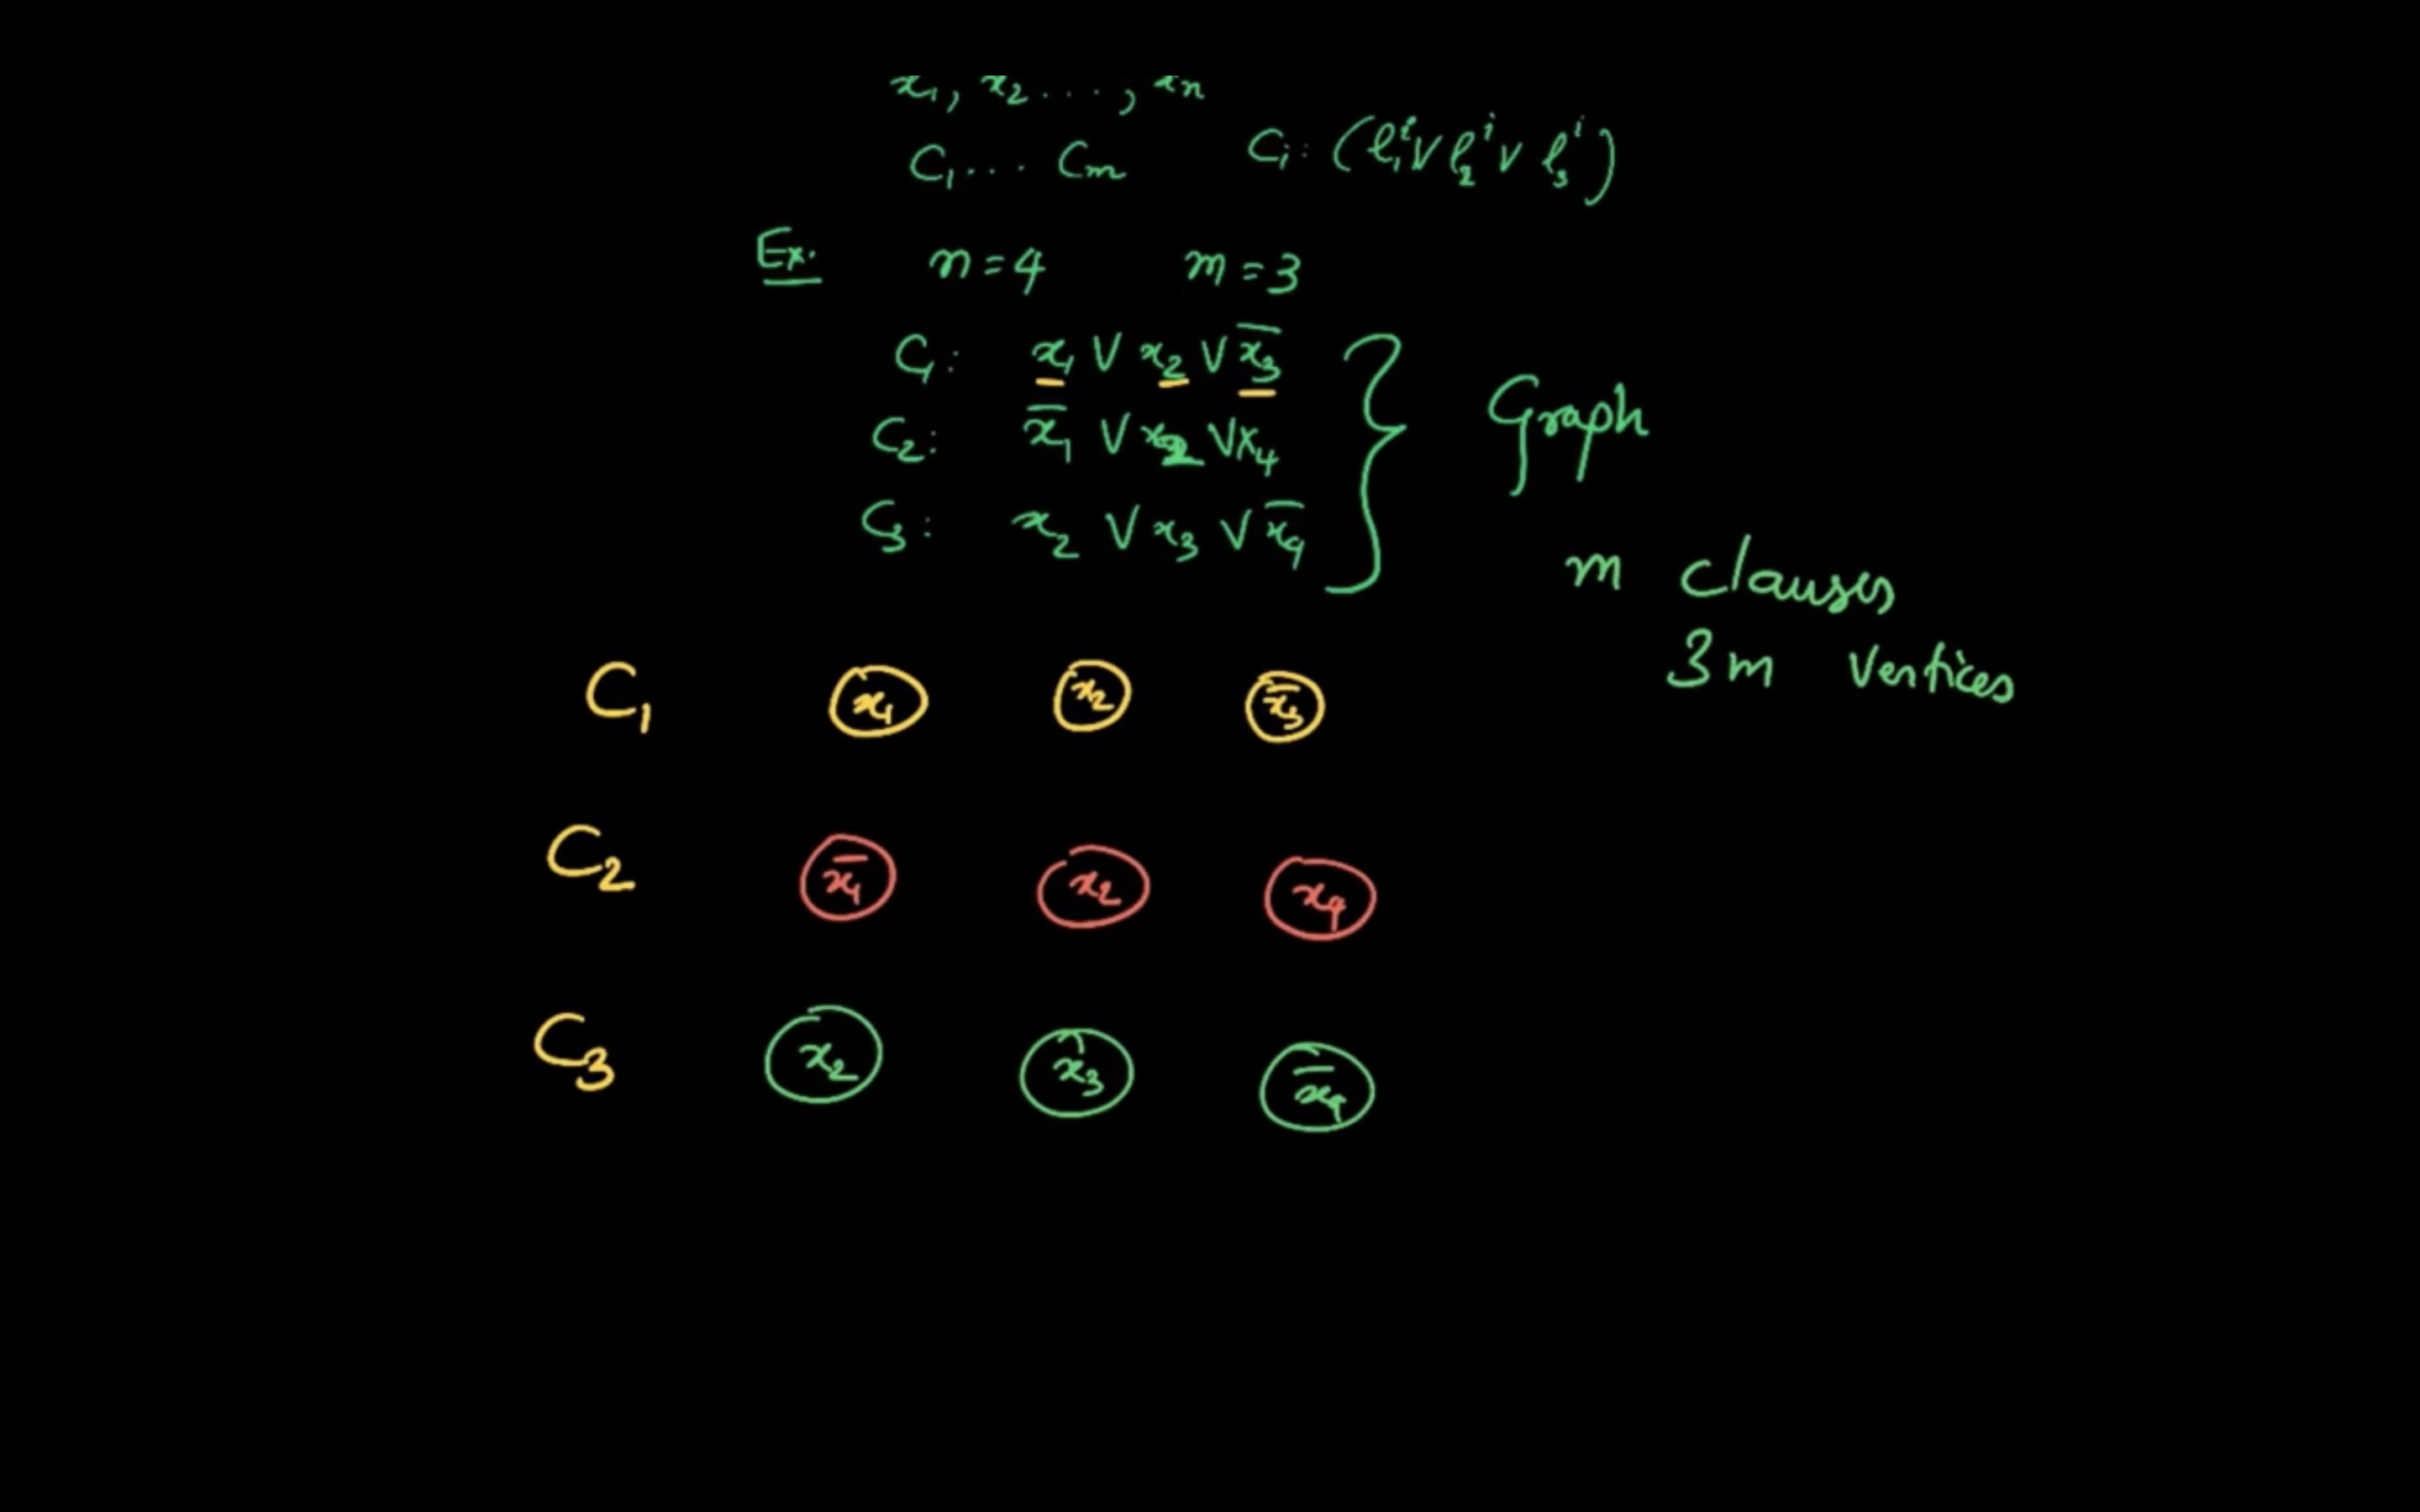 x₁, x₂ ..., xₙ
C₁ ... Cₘ Cᵢ: (ℓ₁ⁱ ∨ ℓ₂ⁱ ∨ ℓ₃ⁱ)
Ex. n = 4 m = 3
C₁: x₁ ∨ x₂ ∨ x̅₃
C₂: x̅₁ ∨ x₂ ∨ x₄
C₃: x₂ ∨ x₃ ∨ x̅₄
Graph
m clauses
3m vertices
C₁ x₁ x₂ x̅₃
C₂ x̅₁ x₂ x₄
C₃ x₂ x₃ x̅₄